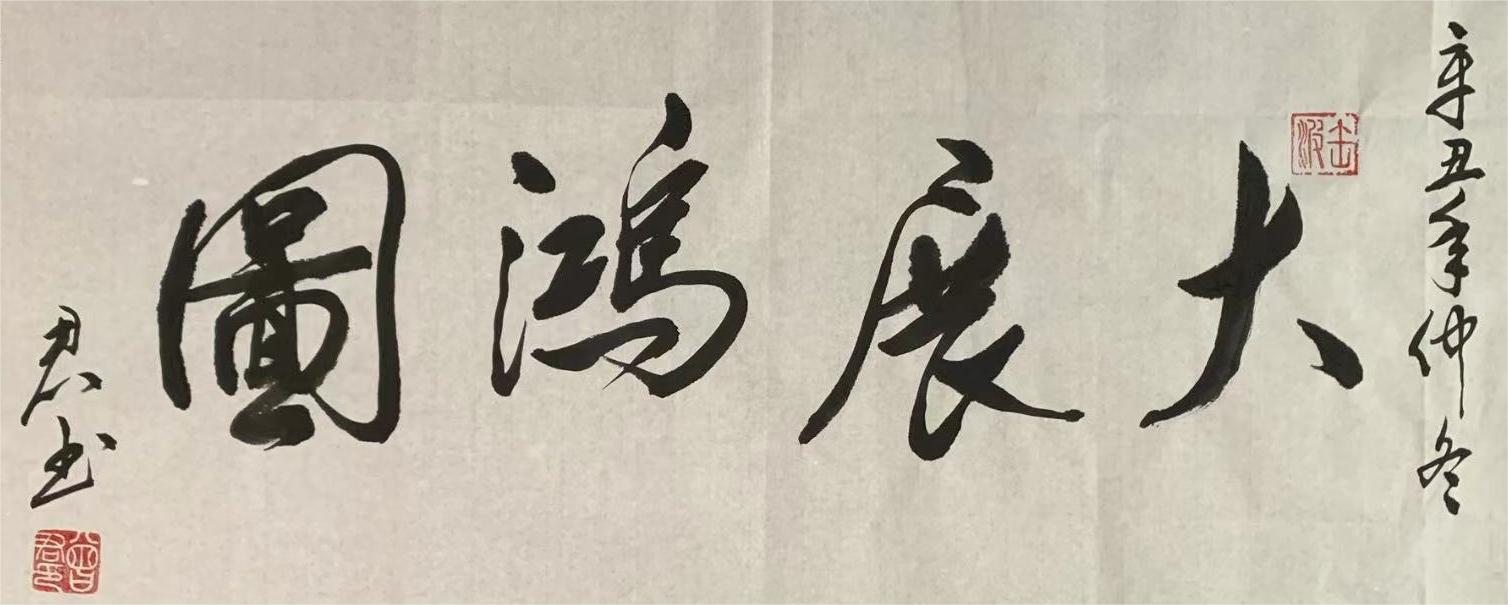 辛丑年仲冬
大展鴻圖
君书